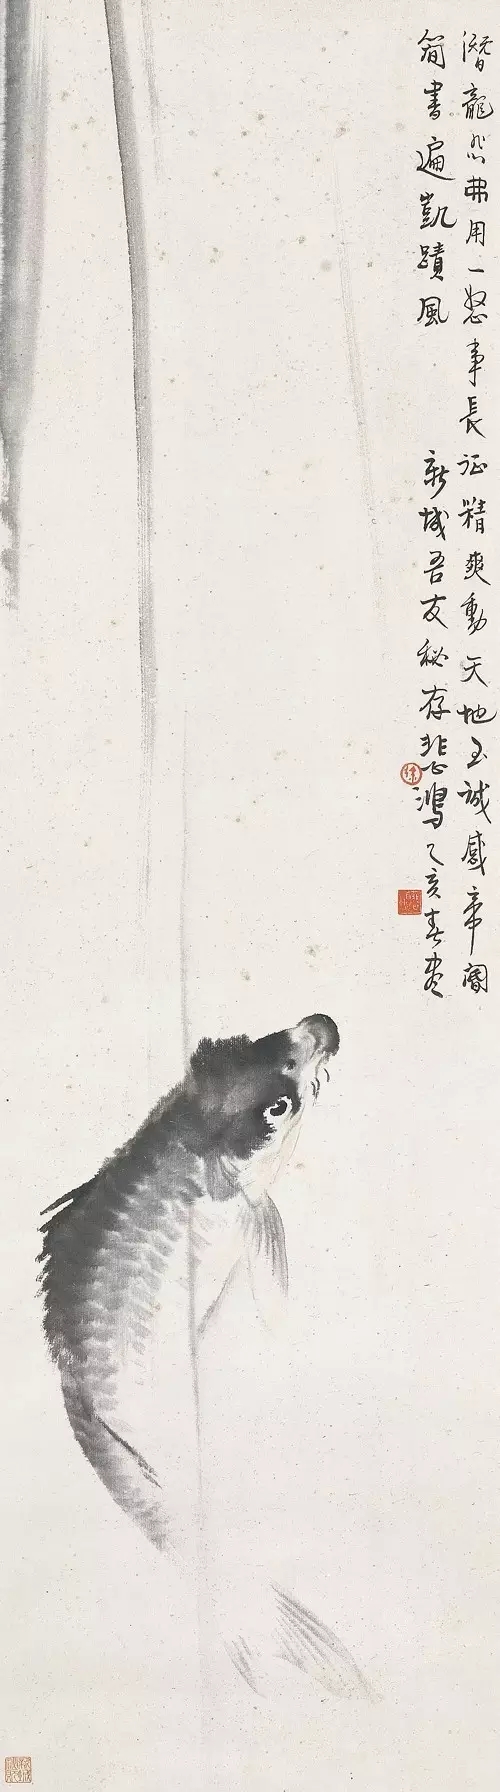 潛龍忿弗用一怒事長征精爽動天地至誠感帝閽
簡書遍凱蹟風 新城吾友秘存悲鴻乙亥春盡